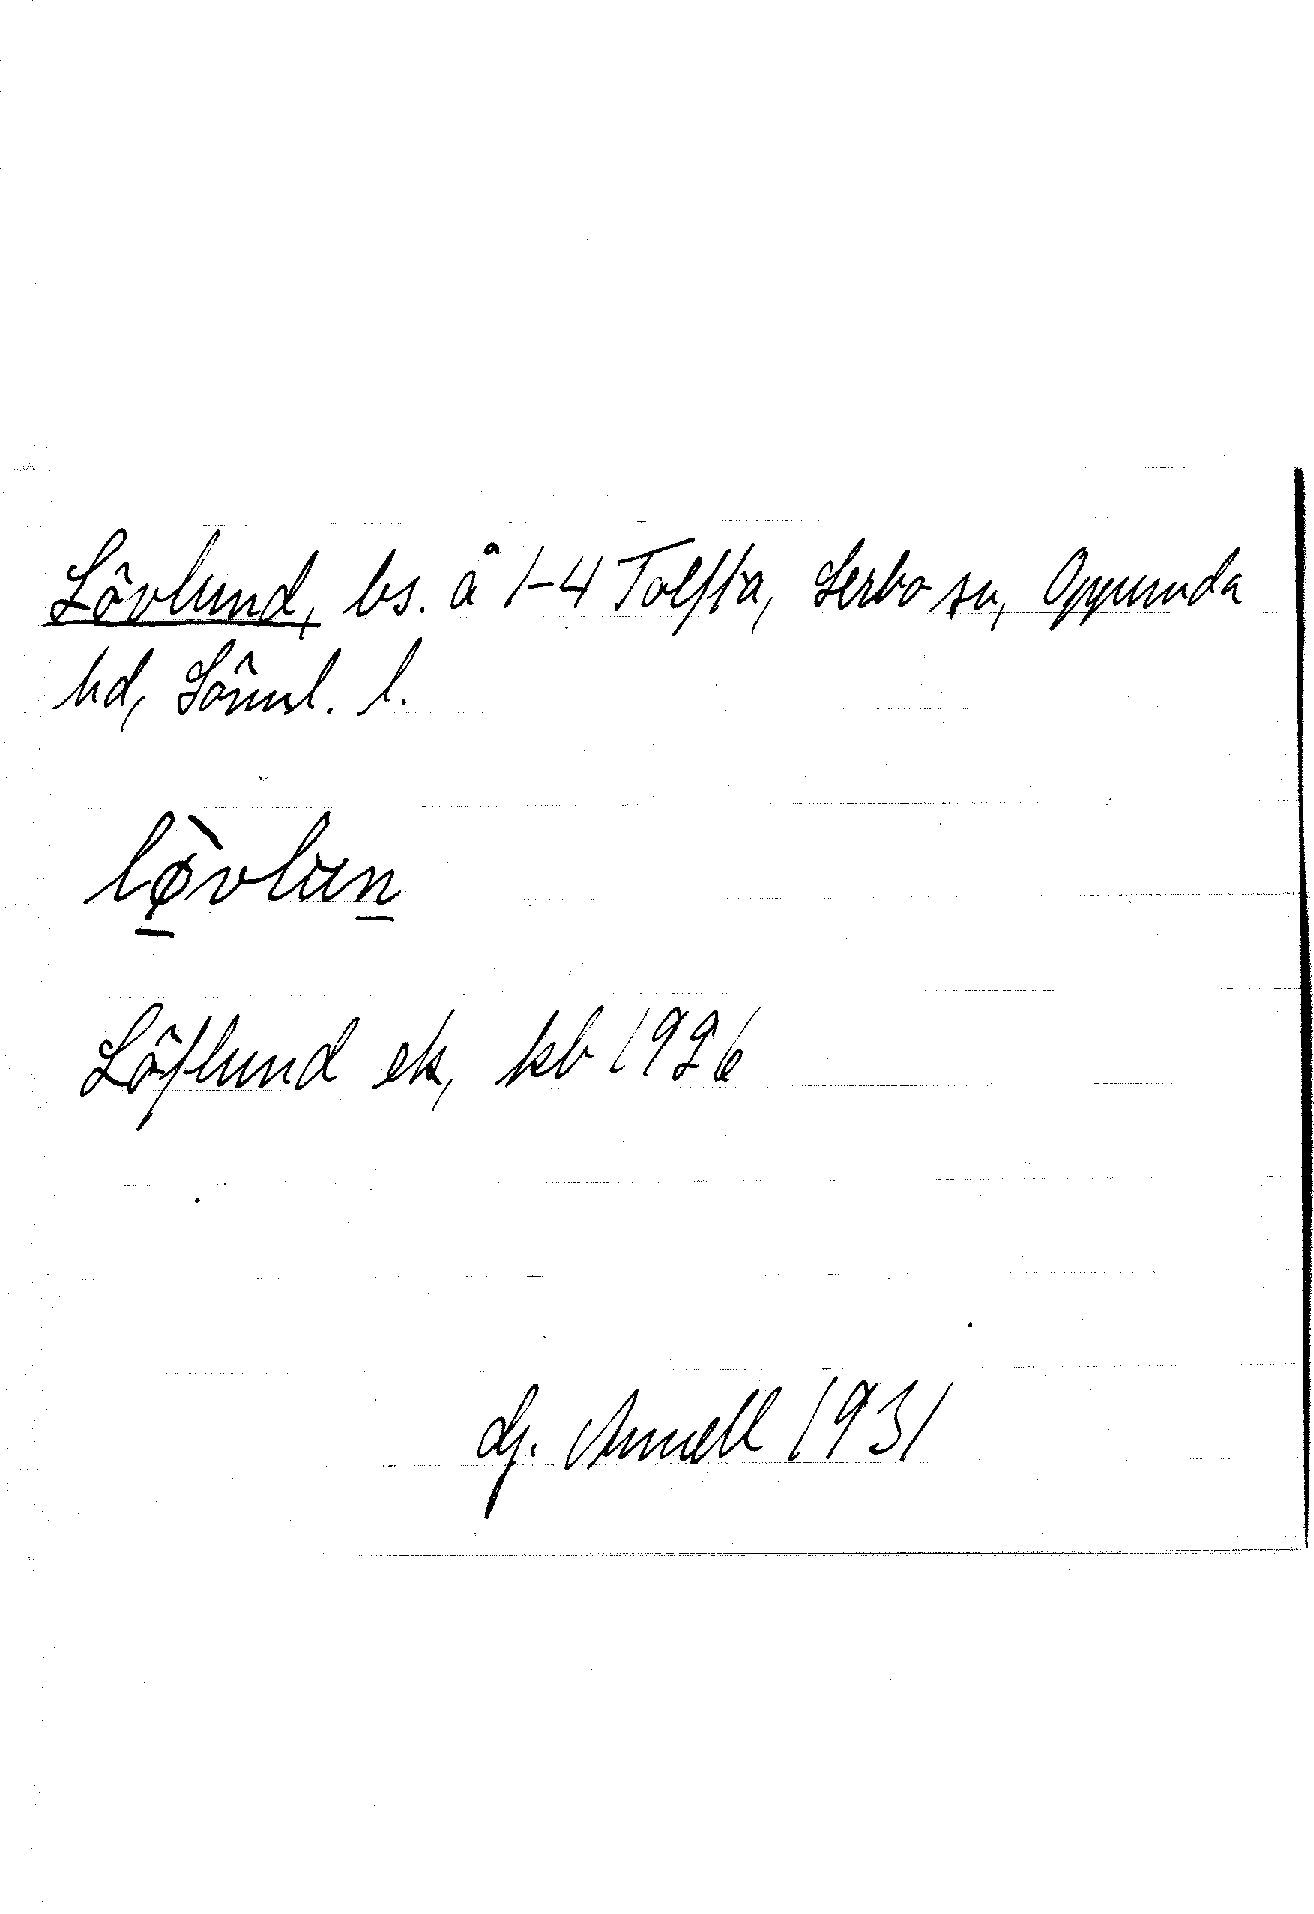 Lövlund, bs. å 1-4 Tolfta, Lerbo sn, Oppunda
hd, Söml. l.
lø̀vlun
Löflund ek, kb 1926
Gj. Annell 1931